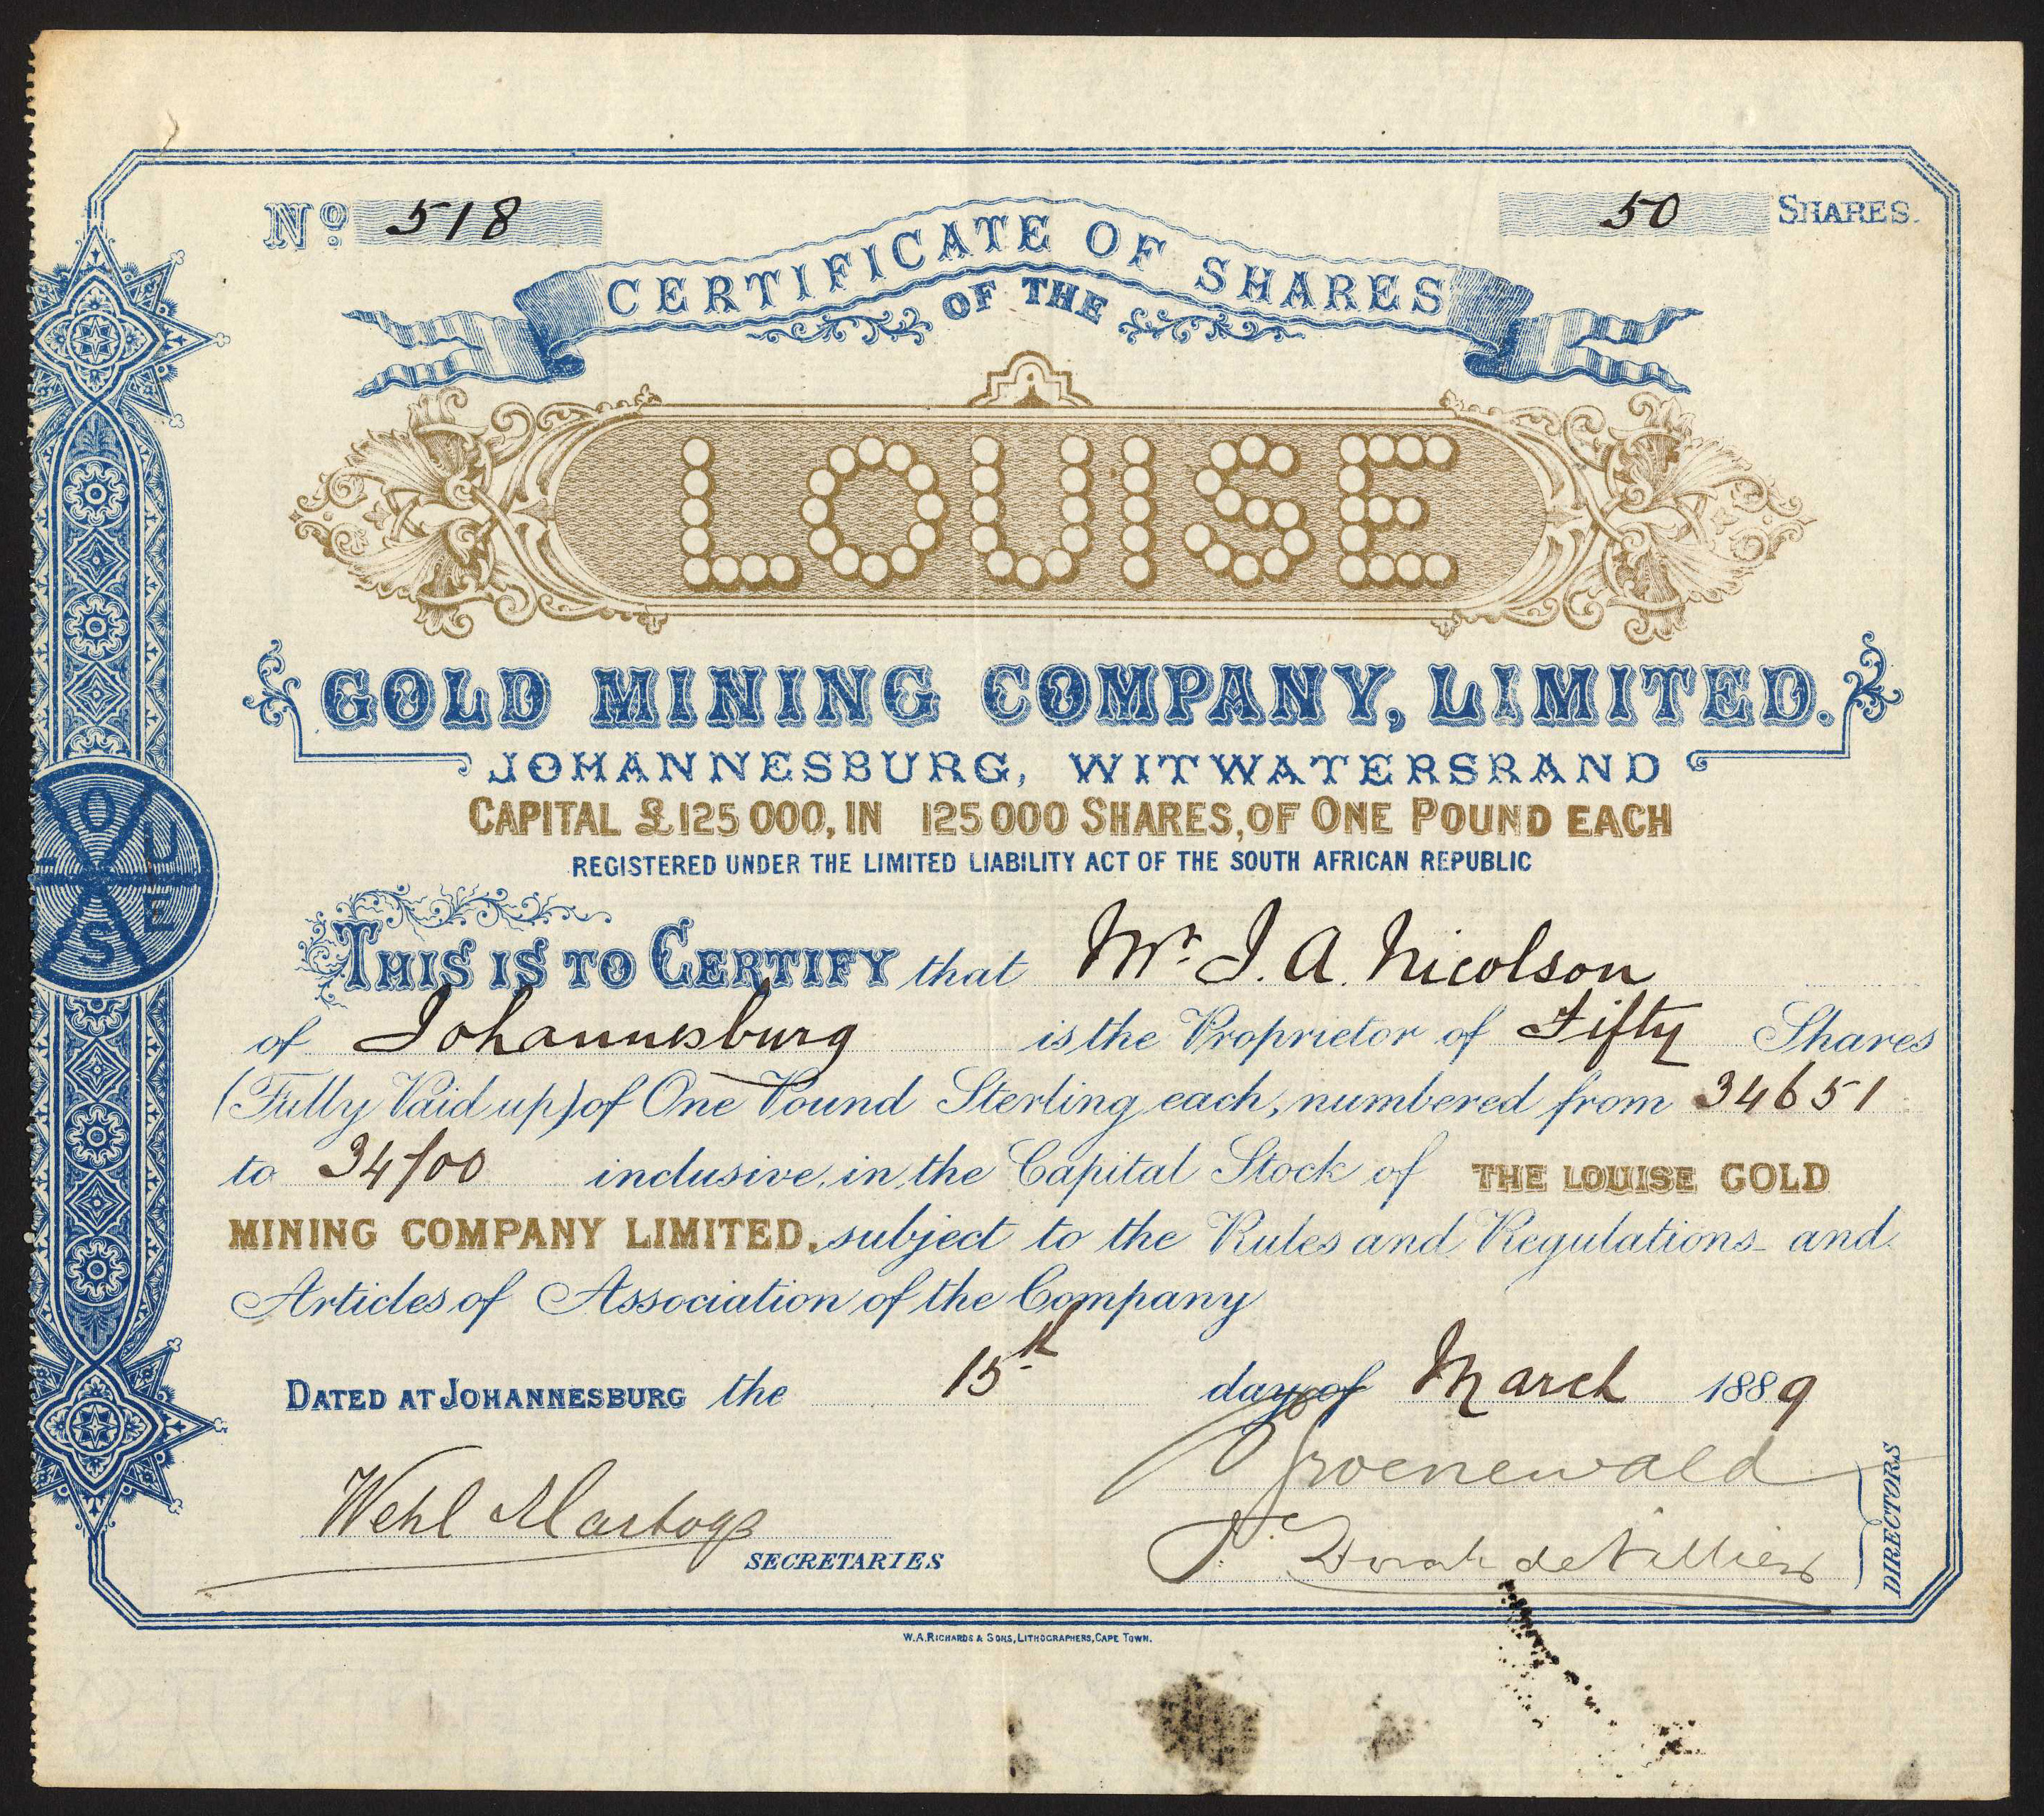 No 518
50 SHARES.
CERTIFICATE OF SHARES
OF THE
LOUISE
GOLD MINING COMPANY, LIMITED.
JOHANNESBURG, WITWATERSRAND
CAPITAL £125 000, IN 125 000 SHARES, OF ONE POUND EACH
REGISTERED UNDER THE LIMITED LIABILITY ACT OF THE SOUTH AFRICAN REPUBLIC
LOUISE
THIS IS TO CERTIFY that Mr. J. A. Nicolson
of Johannesburg is the Proprietor of Fifty Shares
(Fully Paid up) of One Pound Sterling each, numbered from 34651
to 34700 inclusive, in the Capital Stock of THE LOUISE GOLD
MINING COMPANY LIMITED, subject to the Rules and Regulations and
Articles of Association of the Company
DATED AT JOHANNESBURG the 15th day of March 1889
Groenewald
Wehl Hartogs
de Villiers
SECRETARIES
DIRECTORS
W. A. RICHARDS & SONS, LITHOGRAPHERS, CAPE TOWN.